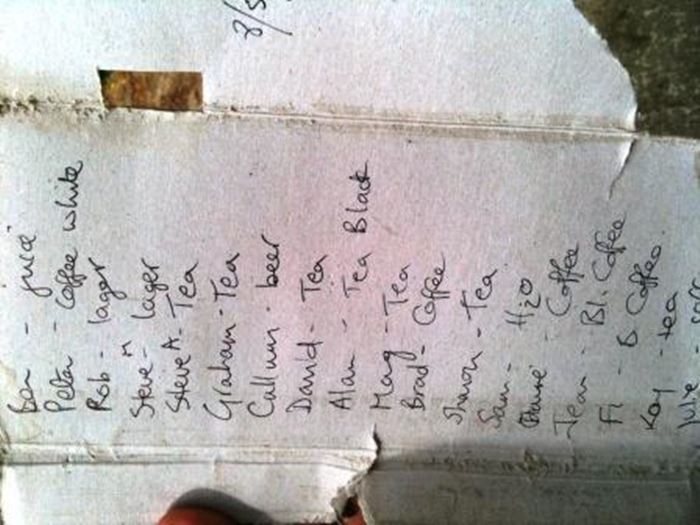 8/5
Ben - juice
Peter - Coffee white
Rob - lager
Steve M - lager
Steve A - Tea
Graham - Tea
Callum - beer
David - Tea
Alan - Tea Black
Marg - Tea
Brad - Coffee
Sharon - Tea
Sam - H2O
- Coffee
Jean - Bl. Coffee
Fi - B Coffee.
Kay - tea
Julie -